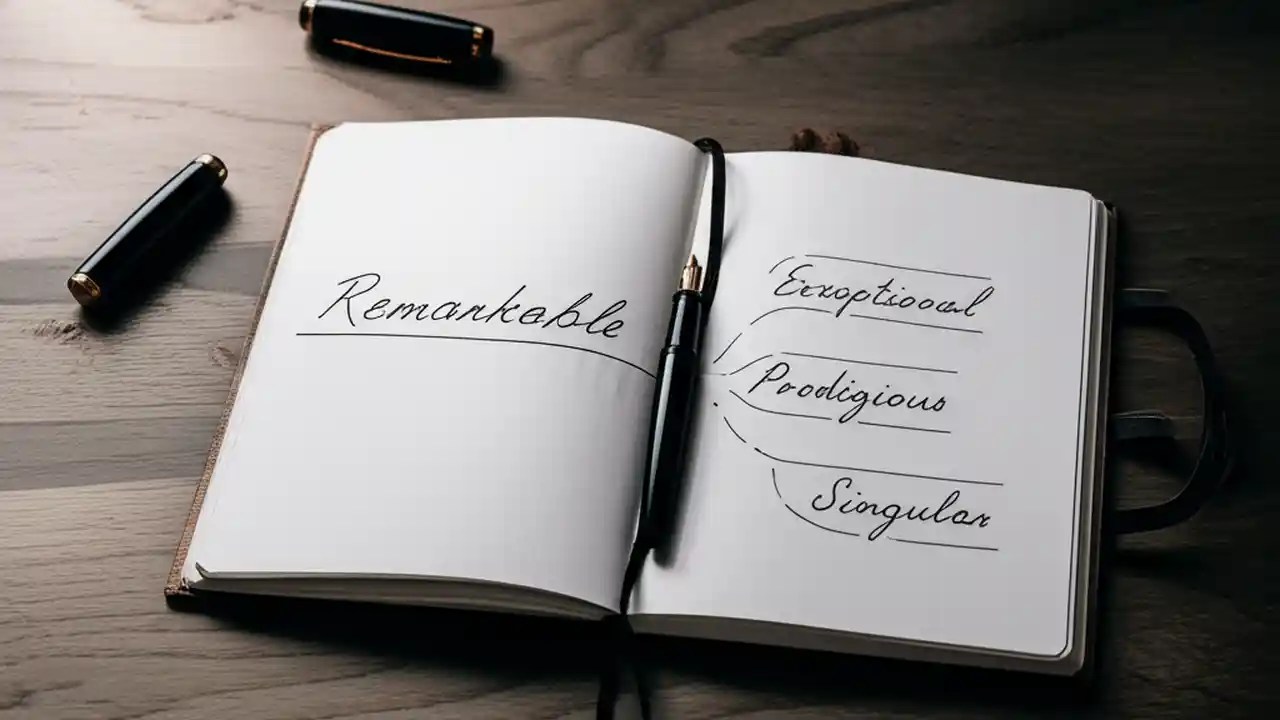 Remarkable
Exceptional
Prodigious
Singular